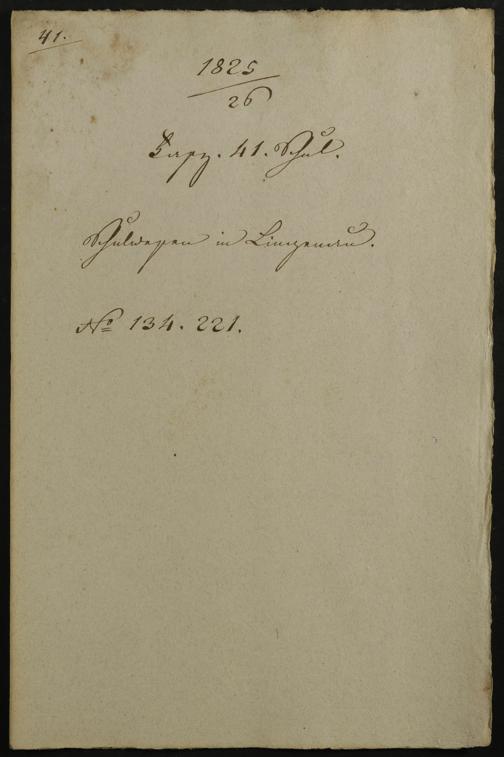 41.
1825
26
Fasz. 41. Schul.
Schulwesen in Lingenau.
No 134. 221.